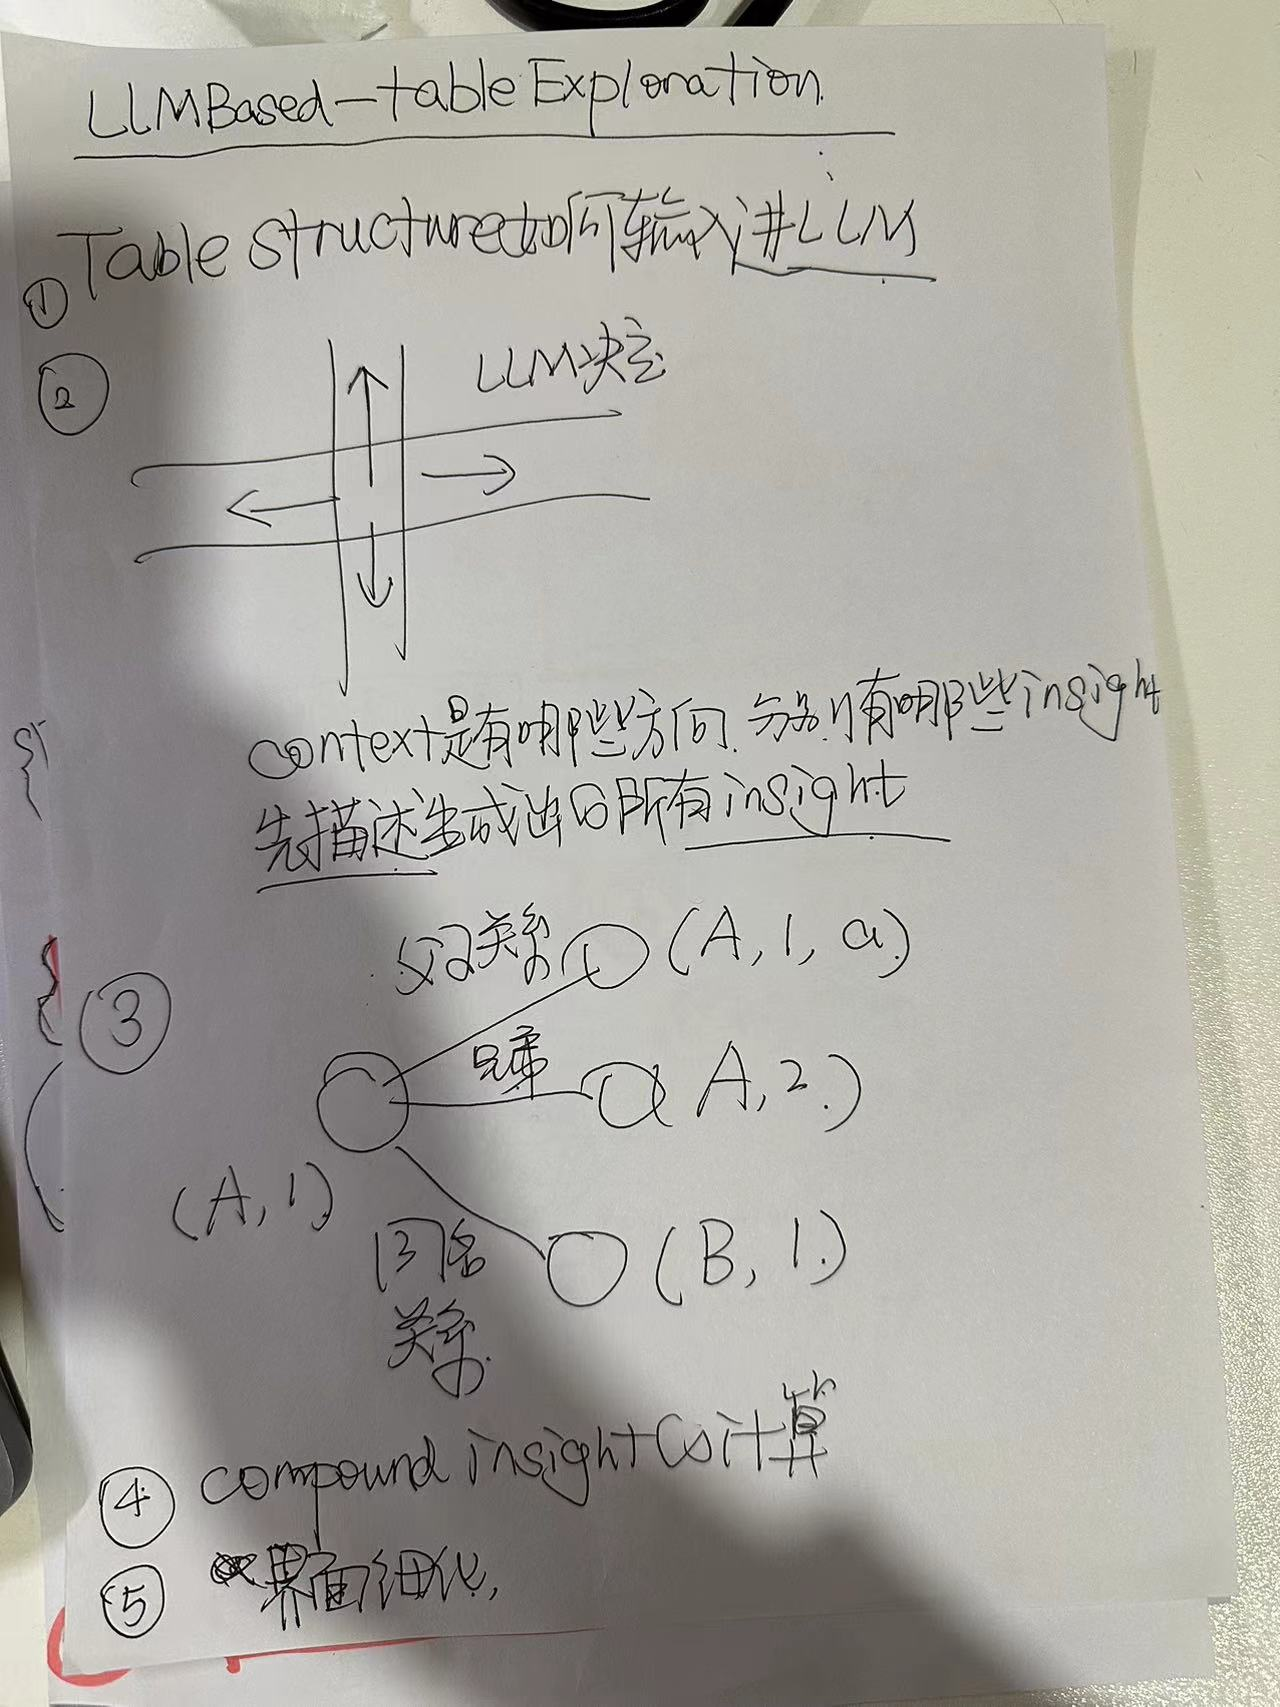 LLMBased-table Exploration
① Table structure如何输入进LLM
②
LLM决定
context是有哪些方向.分别有哪些insight
先描述生成出的所有insight
③
父子关系 (A, 1, a)
兄弟 (A, 2)
(A, 1)
同名 (B, 1)
关系
④ compound insight的计算
⑤ 界面细化,